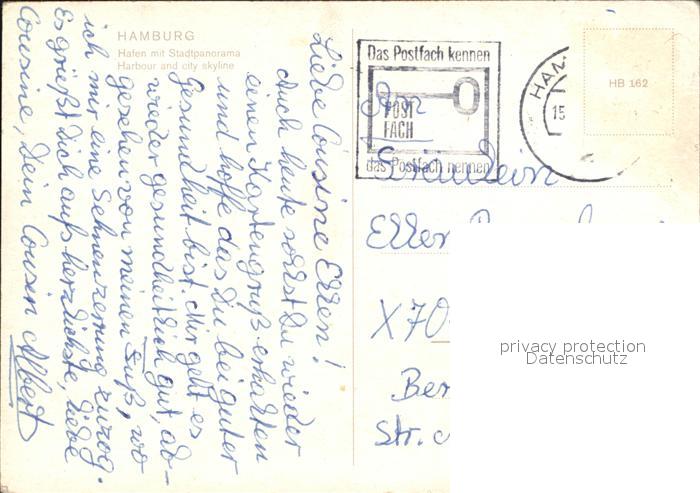 HAMBURG
Hafen mit Stadtpanorama
Harbour and city skyline
Liebe Cousine Ellen!
Auch heute sollst Du wieder
einen Kartengruß erhalten
und hoffe das Du bei guter
Gesundheit bist. Mir geht es
wieder gesundheitlich gut, ab-
gesehen von meinen Fuß, wo
ich mir eine Sehnenzerrung zuzog.
Es grüßt Dich aufs herzlichste, liebe
Cousine, Dein Cousin Albert
Das Postfach kennen
POST
FACH
das Postfach nennen
HAM
15
HB 162
An
Fräulein
Ellen
X70
Ber
Str.
privacy protection
Datenschutz